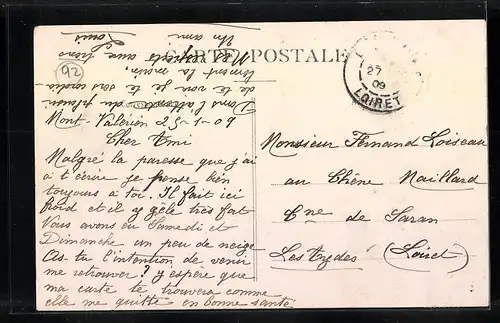 CARTE POSTALE
92
27
09
LOIRET
Mont-Valérien 25-1-09
Cher Ami
Malgré la paresse que j'ai
à t'écrire je pense bien
toujours à toi. Il fait ici
froid et il y gèle très fort
Vous avons eu Samedi et
Dimanche un peu de neige
As-tu l'intention de venir
me retrouver? y espère que
ma carte te trouvera comme
elle me quitte en bonne santé
Dans l'attente du plaisir
de te voir je te serre cordia-
lement la main.
Mes respects aux
Un ami
Louis
Monsieur Fernand Loiseau
au Chêne Maillard
Cne de Saran
Les Aydes (Loiret)